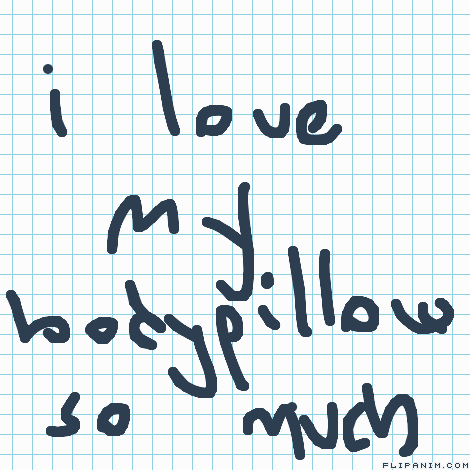 i love
my
bodypillow
so much
FLIPANIM.COM